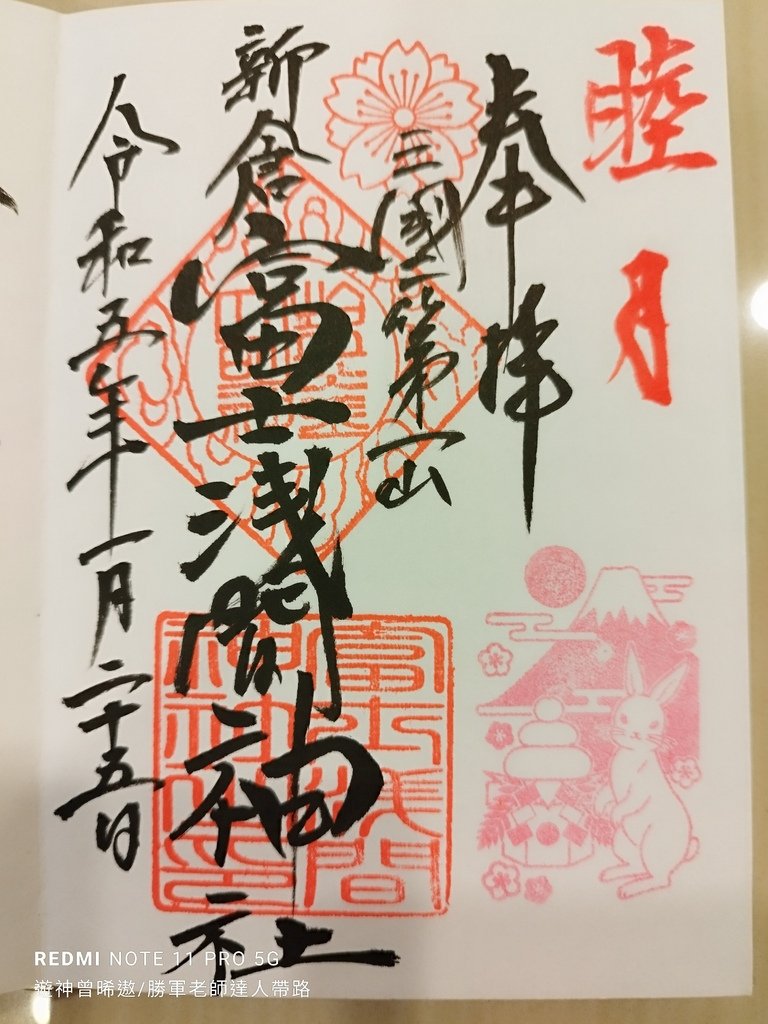 睦月
奉拝
三國第一山
新倉富士浅間神社
令和五年一月二十五日
REDMI NOTE 11 PRO 5G
遊神曾晞遨/勝軍老師達人帶路